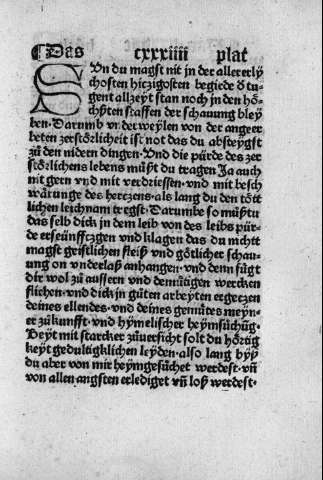 ¶Das cxxxiiii plat
SVn du magst nit in der allererly
chosten hiczigosten begiede d tu
gent allzeyt stan noch in den hö⸗
chsten staffen der schauung bley
ben. Darumb vnderweylen von der angeer
beten zerstörlicheit ist not das du absteygst
zů den nidern dingen. Vnd die pürde des zer
störlichens lebens můst du tragen Ja auch
nit gern vnd mit verdriessen. vnd mit besch
wärunge des herczens. als lang du den tött
lichen leichnam tregst. Darumbe so můstu
das selb dick in dem leib von des leibs pür⸗
de erseünfftzgen vnd klagen das du nichtt
magst geistlichen fleiß vnd götlicher schau⸗
ung on vnderlaß anhangen. vnd denn fügt
dir wol zů aussern vnd demütigen wercken
fliehen. vnd dick in gůten arbeyten ergeczen
deines ellendes. vnd deines gemütes meyn⸗
er zůkunfft. vnd hymelischer heymsůchūg.
Beyt mit starcker zůuersicht solt du hörtig
keyt gedultigklichen leyden. also lang byß
du aber von mir heymgesůchet werdest. vñ
von allen angsten erlediget vñ loß werdest.